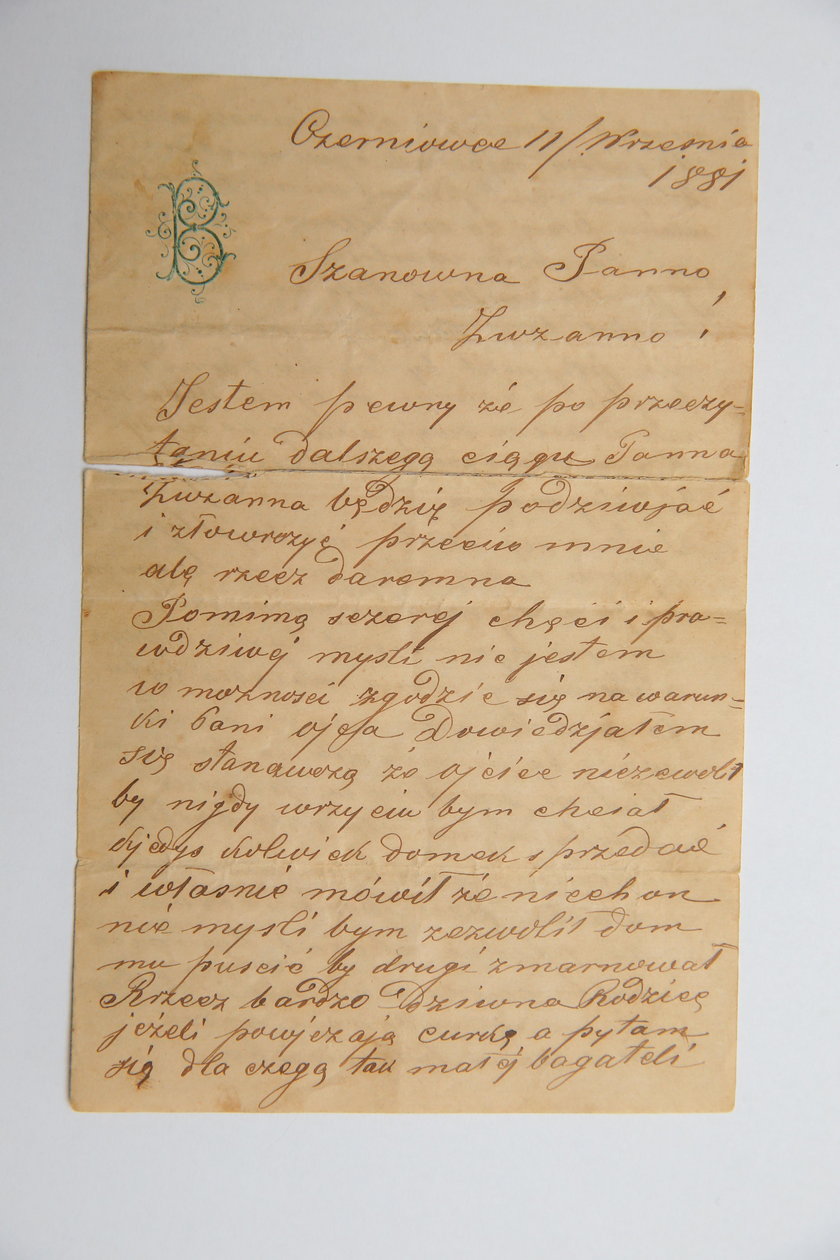 Czerniowce 11/ Września
1881
B
Szanowna Panno
Zuzanno!
Jestem pewny że po przeczy-
taniu dalszegą ciągu Panna
Zuzanna będzię podziwjać
i złoworzyć przeciw mnie
alę rzecz daremna
Pomimą szczerej chęći i pra=
wdziwej mysli nie jestem
w możnosci zgodzic się na warun=
ki Pani ojca Dowiedzjałem
się stanawczą że ojciec niezewolił
by nigdy wrzyciu bym chciał
kjedys kolwiek domek sprzedać
i własnie mówił że niech on
nie mysli bym zezwolił dom
mu puscić by drugi zmarnował
Rrzecz bardzo Dziwna Rodzicę
jeżeli powjczają curkę a pytam
się dla czegą tak małej bagateli